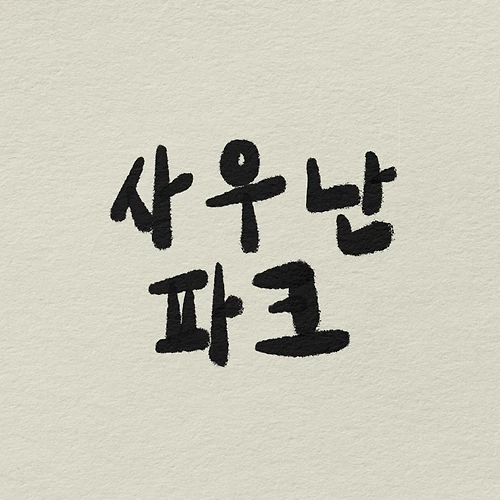 사우난
파크